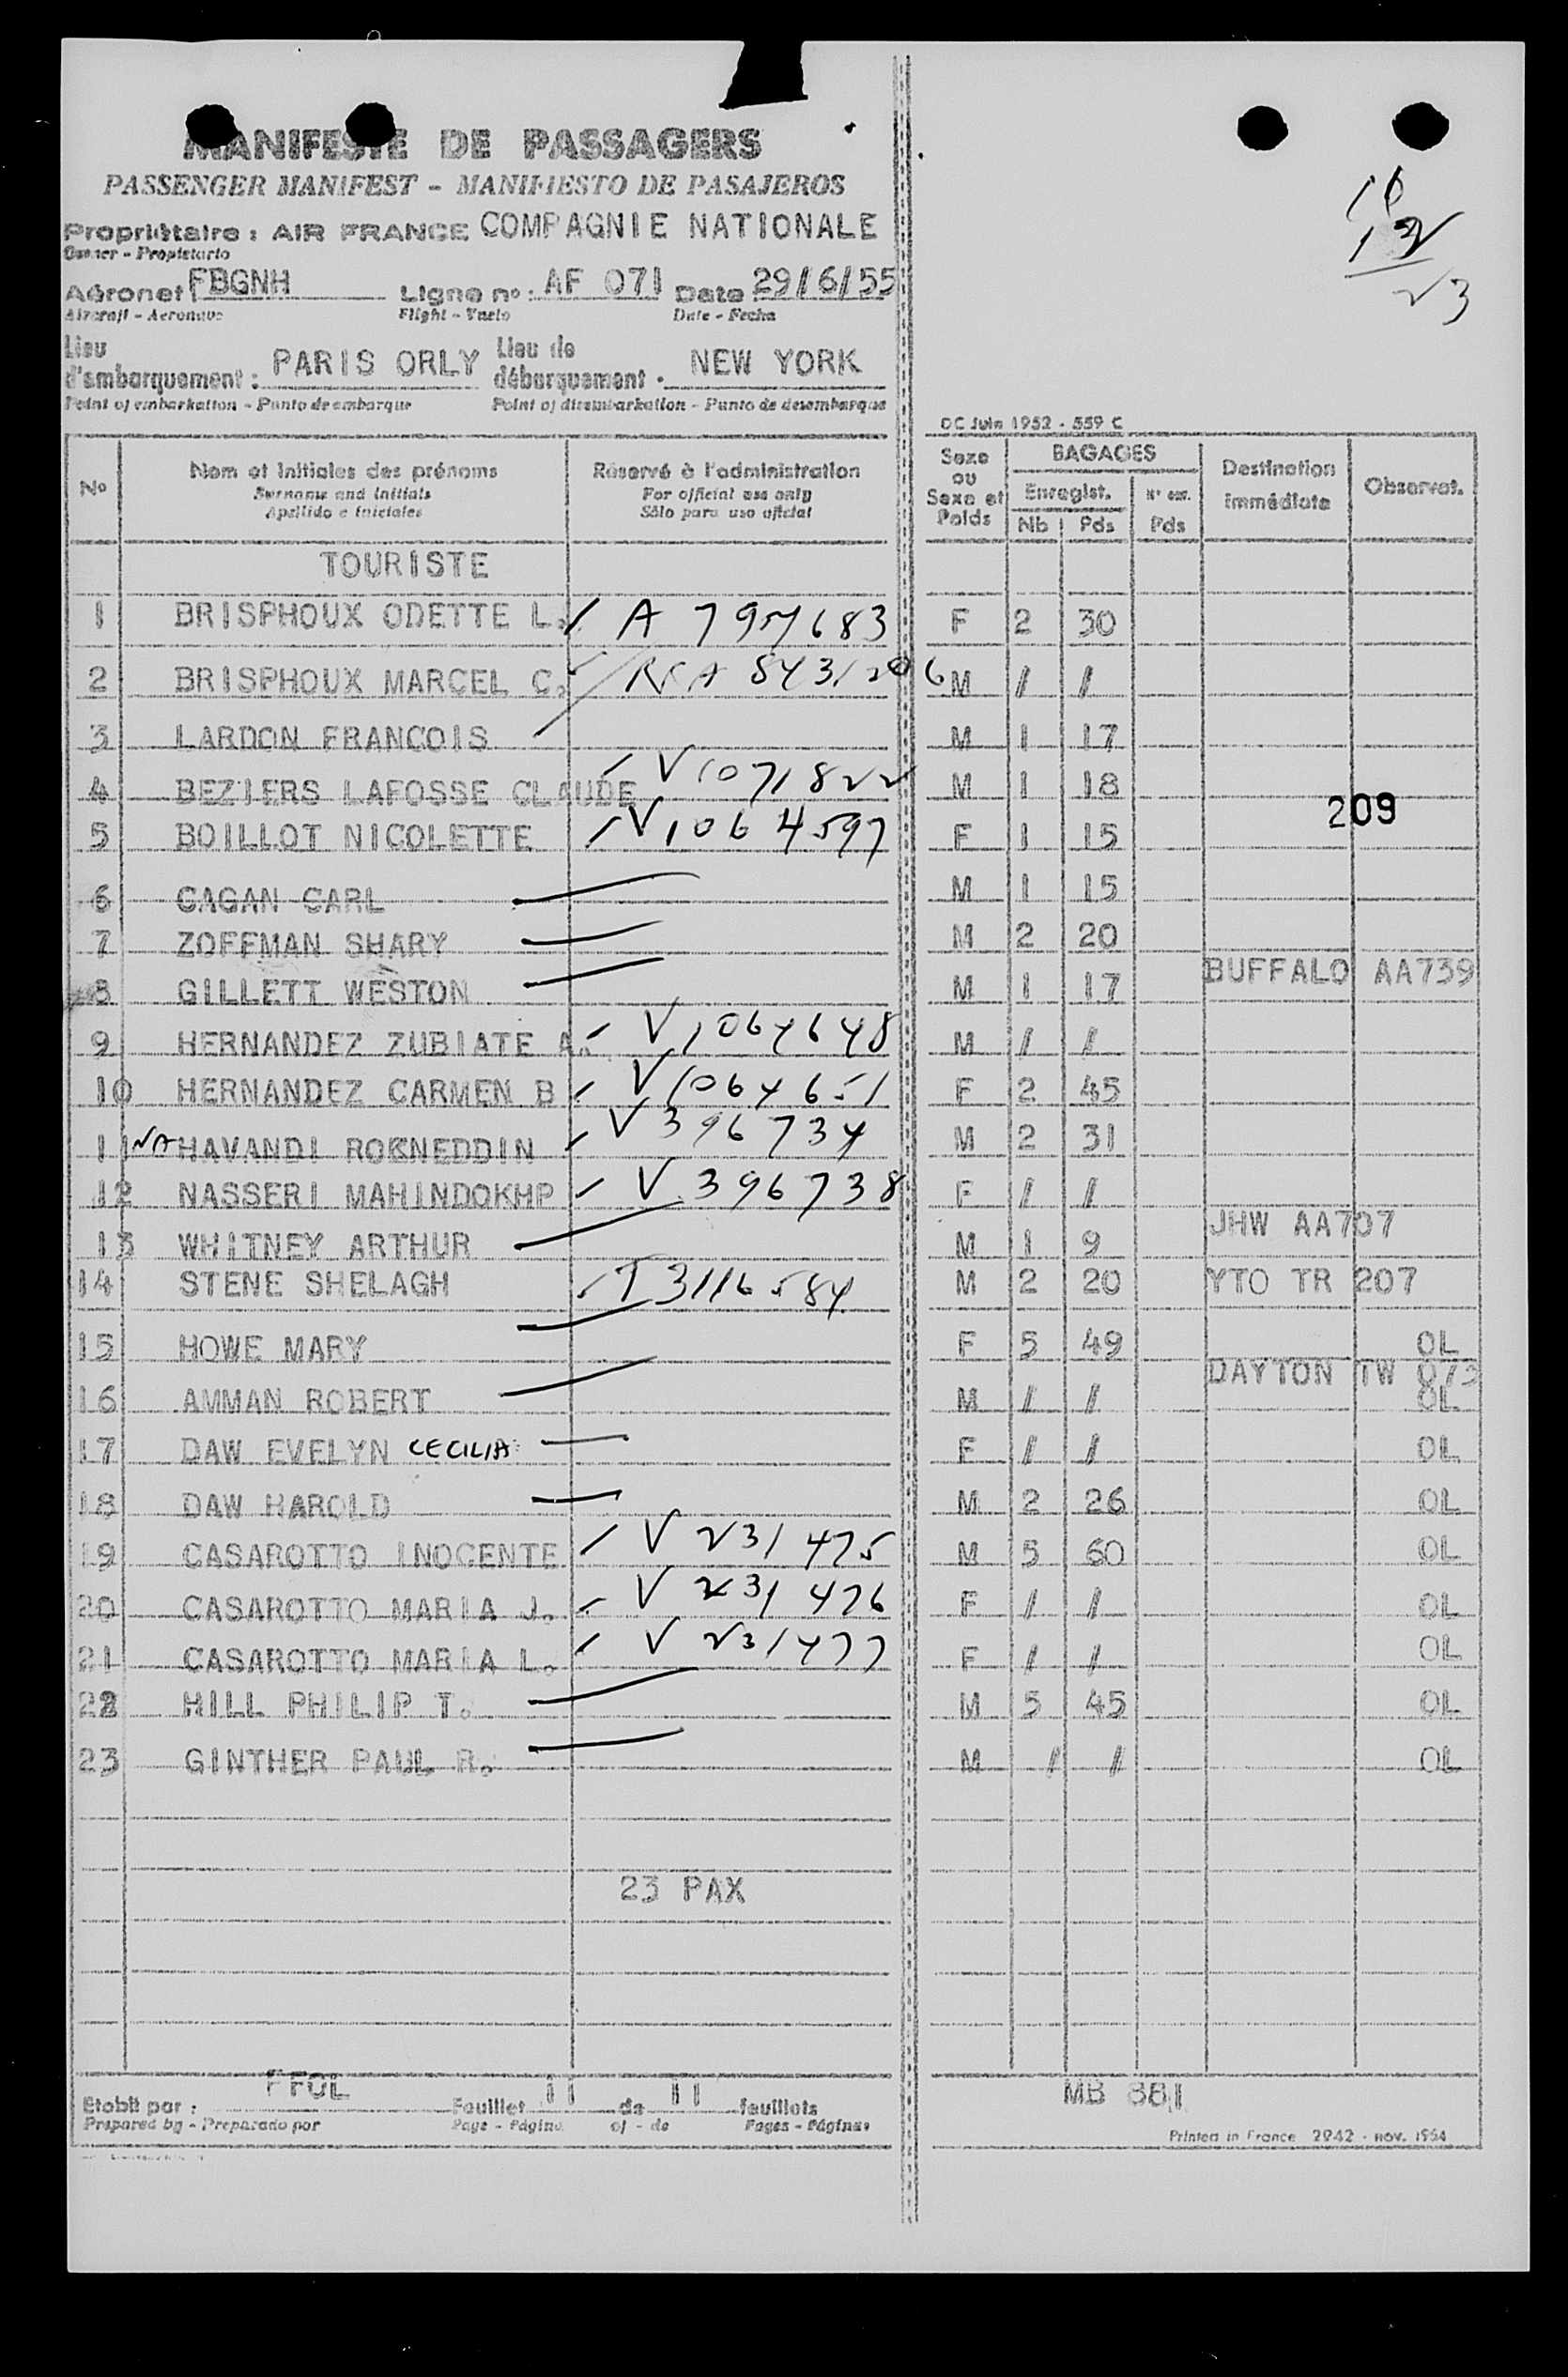 MANIFESTE DE PASSAGERS
PASSENGER MANIFEST - MANIFIESTO DE PASAJEROS
Propriétaire : AIR FRANCE COMPAGNIE NATIONALE
Owner - Propietario
Aéronef : FBGNH Ligne no : AF 071 Date 29/6/55
Aircraft - Aeronave Flight - Vuelo Date - Fecha
Lieu d'embarquement : PARIS ORLY Lieu de débarquement : NEW YORK
Point of embarkation - Punto de embarque Point of disembarkation - Punto de desembarque
16
12
23
DC Juin 1952 - 559 C
No Nom et initiales des prénoms Réservé à l'administration Sexe ou Sexe et Poids BAGAGES Destination immédiate Observat.
Surname and initials For official use only Enregist.
Apellido e iniciales Sólo para uso oficial Nb Pds Pds
TOURISTE
1 BRISPHOUX ODETTE L. F 2 30
2 BRISPHOUX MARCEL C. M / /
3 LARDON FRANCOIS M 1 17
4 BEZIERS LAFOSSE CLAUDE V 1071822 M 1 18
209
5 BOILLOT NICOLETTE V1064597 F 1 15
6 CAGAN CARL M 1 15
7 ZOFFMAN SHARY M 2 20
8 GILLETT WESTON M 1 17 BUFFALO AA739
9 HERNANDEZ ZUBIATE A. V 1064648 M / /
10 HERNANDEZ CARMEN B V1064651 F 2 45
11 NA HAVANDI ROKNEDDIN V 396734 M 2 31
12 NASSERI MAHINDOKHP V 396738 F / /
13 WHITNEY ARTHUR M 1 9 JHW AA707
14 STENE SHELAGH T 3116584 M 2 20 YTO TR 207
15 HOWE MARY F 5 49 OL
16 AMMAN ROBERT M / / DAYTON TW 073 OL
17 DAW EVELYN CECILIA F / / OL
18 DAW HAROLD M 2 26 OL
19 CASAROTTO INOCENTE V 231 475 M 5 60 OL
20 CASAROTTO MARIA J. V 231 476 F / / OL
21 CASAROTTO MARIA L. V 231477 F / / OL
22 HILL PHILIP T. M 5 45 OL
23 GINTHER PAUL R. M / / OL
23 PAX
Etabli par : FFOL Feuillet 11 de 11 feuillets MB 881
Prepared by - Preparado por Page - Página of - de Pages - Páginas
Printed in France 2942 - nov. 1954